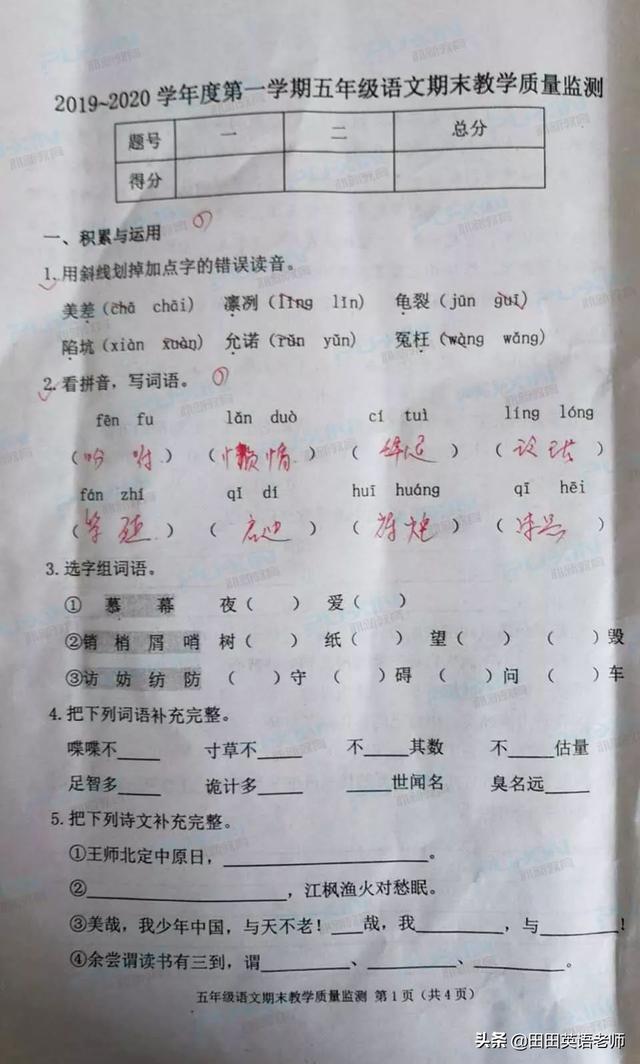 2019~2020 学年度第一学期五年级语文期末教学质量监测
题号 一 二 总分
得分
一、积累与运用
1.用斜线划掉加点字的错误读音。
美差(chā chāi) 凛冽(lǐng lǐn) 龟裂(jūn guī)
陷坑(xiàn xuàn) 允诺(rǔn yǔn) 冤枉(wàng wǎng)
2.看拼音,写词语。
fēn fu lǎn duò cí tuì líng lóng
(吩 咐) (懒惰) (辞退) (玲珑)
fán zhí qǐ dí huī huáng qī hēi
(繁殖) (启迪) (辉煌) (漆黑)
3.选字组词语。
① 慕 幕 夜( ) 爱( )
②销 梢 屑 哨 树( ) 纸( ) 望( ) ( )毁
③访 妨 纺 防 ( )守 ( )碍 ( )问 ( )车
4.把下列词语补充完整。
喋喋不____ 寸草不____ 不____其数 不____估量
足智多____ 诡计多____ ____世闻名 臭名远____
5.把下列诗文补充完整。
①王师北定中原日,____________________。
②____________________,江枫渔火对愁眠。
③美哉,我少年中国,与天不老!___哉,我________,与_______!
④余尝谓读书有三到,谓________、________、________。
五年级语文期末教学质量监测 第1页(共4页)
头条@田田英语老师